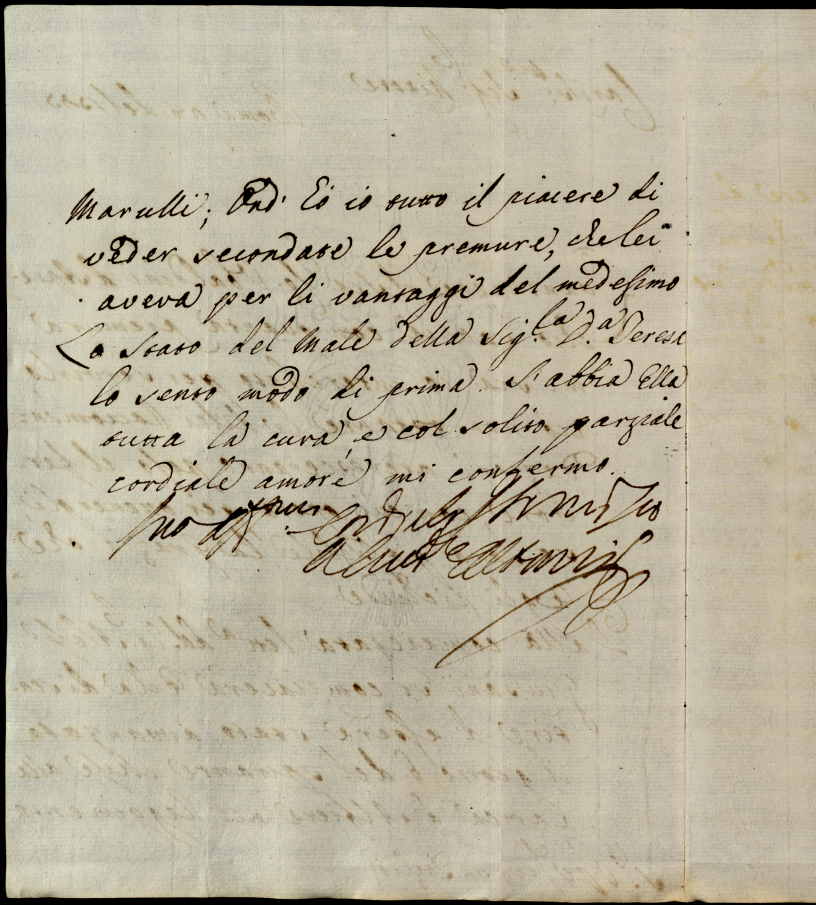 Marulli; Ond' Eò io tutto il piacere di
veder secondate le premure, che lei
aveva per li vantaggi del medesimo
Lo stato del male della Sig.la D.a Teresa
lo sento modo di prima. S'abbia Ella
tutta la cura, e col solito parziale
cordiale amore mi confermo.
Suo aff.mo